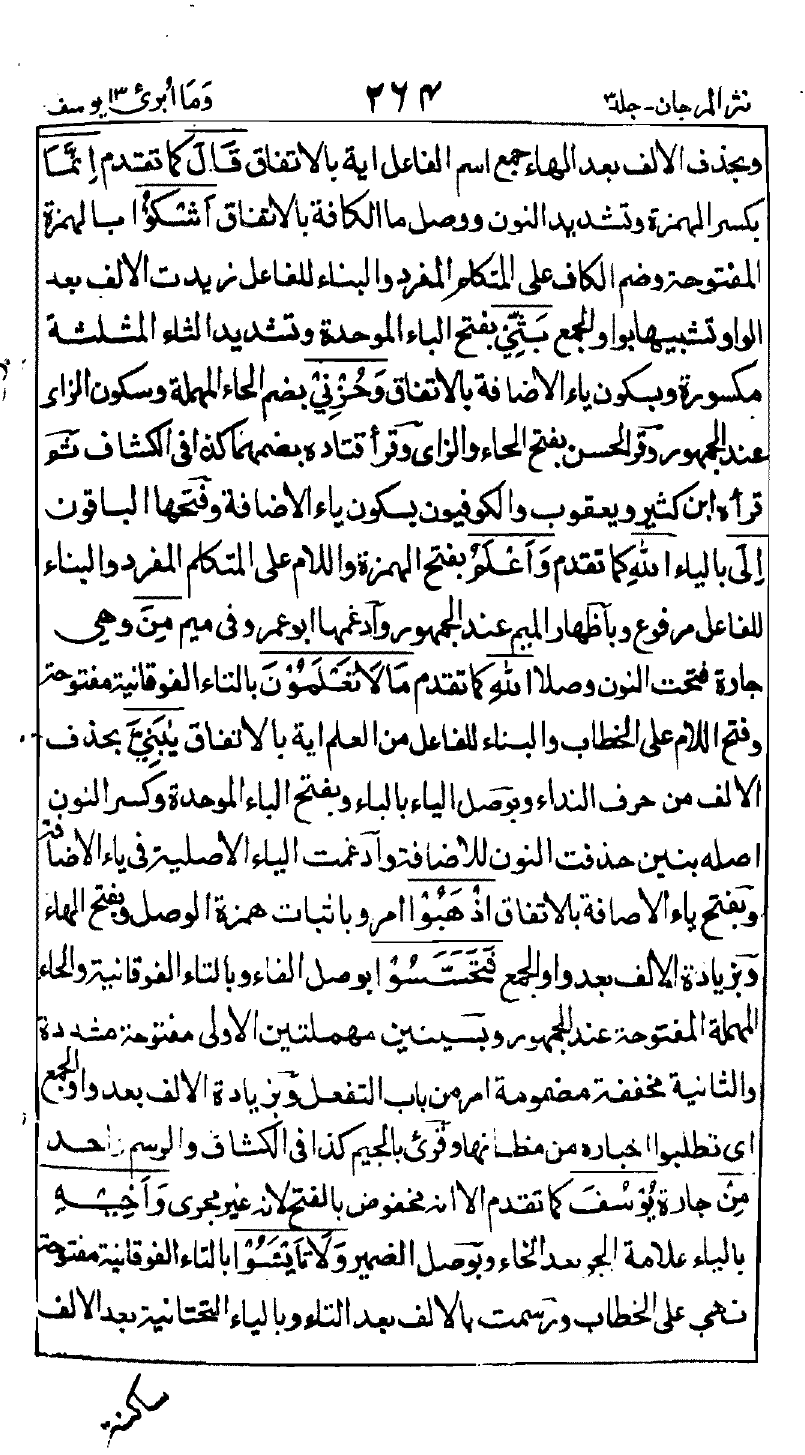 نثر المرجان - جلد ٣ ٢٦٤ وَمَا أُبرئ ١٣ يوسف
وبحذف الالف بعد الهاء جمع اسم الفاعل اية بالاتفاق قَالَ كما تقدم اِنَّمَا
بكسر الهمزة وتشديد النون ووصل ما الكافة بالاتفاق اَشْكُوْا بالهمزة
المفتوحة وضم الكاف على المتكلم المفرد والبناء للفاعل زيدت الالف بعد
الواو تشبيها بواو الجمع بَثِّيْ بفتح الباء الموحدة وتشديد الثاء المثلثة
مكسورة وبسكون ياء الاضافة بالاتفاق وَحُزْنِيْ بضم الحاء المهملة وسكون الزاى
عند الجمهور وقرأ الحسن بفتح الحاء والزاى وقرأ قتاده بضمهما كذا فى الكشاف ثم
قرأه ابن كثير ويعقوب والكوفيون بسكون ياء الاضافة وفتحها الباقون
اِلَى بالياء اللّٰهِ كما تقدم وَاَعْلَمُ بفتح الهمزة واللام على المتكلم المفرد والبناء
للفاعل مرفوع وباظهار الميم عند الجمهور وادغمها ابو عمرو فى ميم مِنَ وهي
جارة فتحت النون وصلا اللّٰهِ كما تقدم مَا لَا تَعْلَمُوْنَ بالتاء الفوقانية مفتوحة
وفتح اللام على الخطاب والبناء للفاعل من العلم اية بالاتفاق يٰبَنِيَّ بحذف
الالف من حرف النداء وبوصل الياء بالباء وبفتح الباء الموحدة وكسر النون
اصله بنين حذفت النون للاضافة وادغمت الياء الاصلية فى ياء الاضافة
وبفتح ياء الاضافة بالاتفاق اذْهَبُوْا امر وباثبات همزة الوصل وبفتح الهاء
وبزيادة الالف بعد واو الجمع فَتَحَسَّسُوْا بوصل الفاء وبالتاء الفوقانية والحاء
المهملة المفتوحة عند الجمهور وبسينين مهملتين الاولى مفتوحة مشددة
والثانية مخففة مضمومة امر من باب التفعل وبزيادة الالف بعد واو الجمع
اى تطلبوا اخباره من مظانها وقرئ بالجيم كذا فى الكشاف والرسم واحد
مِنْ جارة يُوْسُفَ كما تقدم الا انه مخفوض بالفتح لانه غير مجرى وَاَخِيْهِ
بالياء علامة الجر بعد الخاء وبوصل الضمير وَلَا تَايْئَسُوْا بالتاء الفوقانية مفتوحة
نهي على الخطاب ورسمت بالالف بعد التاء وبالياء التحتانية بعد الالف
ساكنة